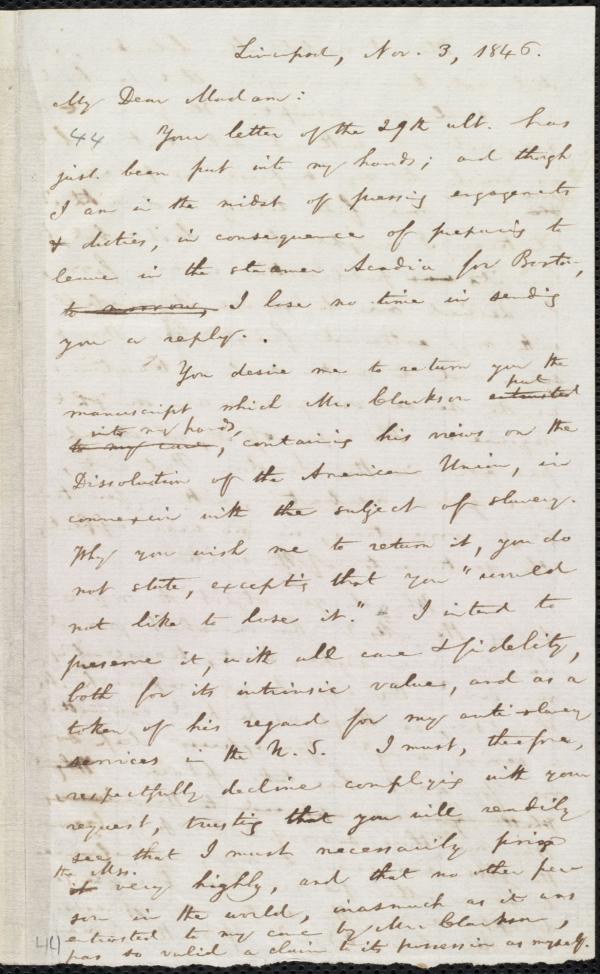 Liverpool, Nov. 3, 1846.
My Dear Madam:
44 Your letter of the 29th ult. has
just been put into my hands; and though
I am in the midst of pressing engagements
& duties, in consequence of preparing to
leave in the steamer Acadia for Boston,
to-morrow, I lose no time in sending
you a reply.
You desire me to return you the
put
manuscript which Mr. Clarkson entrusted
into my hands,
to my care, containing his views on the
Dissolution of the American Union, in
connexion with the subject of slavery.
Why you wish me to return it, you do
not state, excepting that you "would
not like to lose it." I intend to
preserve it, with all care & fidelity,
both for its intrinsic value, and as a
token of his regard for my anti-slavery
services in the U. S. I must, therefore,
respectfully decline complying with your
request, trusting that you will readily
see that I must necessarily prize
the Mss.
it very highly, and that no other per-
son in the world, inasmuch as it was
entrusted to my care by Mr. Clarkson,
44 has so valid a claim to its possession as myself.